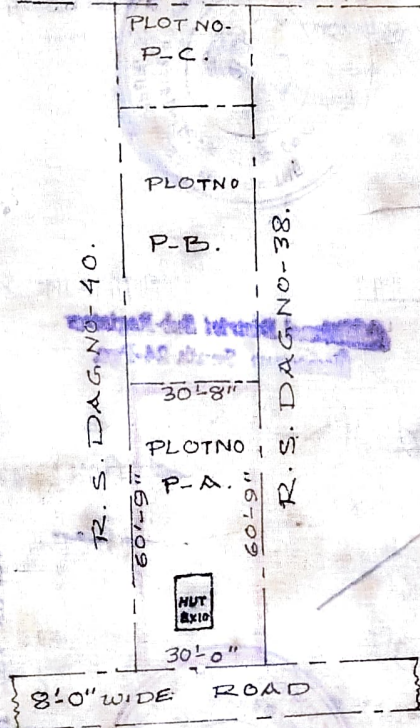 PLOT NO.
P-C.
PLOTNO
P-B.
R.S. DAG NO-40.
R.S. DAG NO-38.
30'-8"
PLOTNO
P-A.
60'-9"
60'-9"
HUT
8X10
30'-0"
8'-0" WIDE ROAD